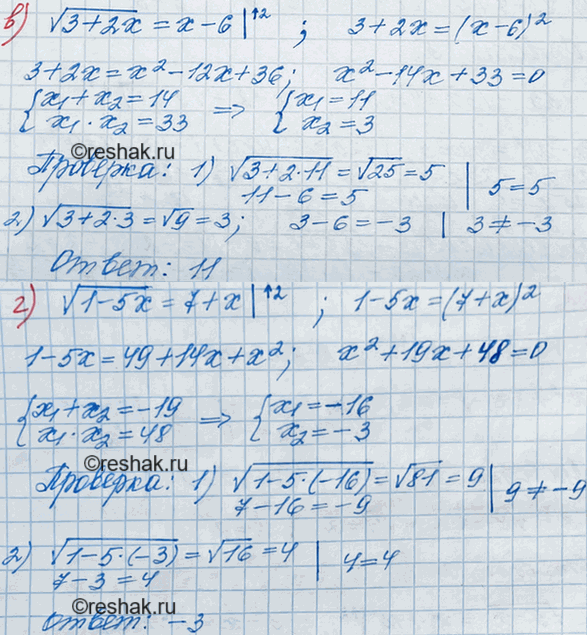 в) √(3+2x) = x-6 |↑2 ; 3+2x=(x-6)²
3+2x=x²-12x+36; x²-14x+33=0
{x₁+x₂=14 ⇒ {x₁=11
x₁·x₂=33 x₂=3
©reshak.ru
Проверка: 1) √(3+2·11)=√25=5 | 5=5
11-6=5
2) √(3+2·3)=√9=3; 3-6=-3 | 3≠-3
Ответ: 11
г) √(1-5x) = 7+x |↑2 ; 1-5x=(7+x)²
1-5x=49+14x+x²; x²+19x+48=0
{x₁+x₂=-19 ⇒ {x₁=-16
x₁·x₂=48 x₂=-3
©reshak.ru
Проверка: 1) √(1-5·(-16))=√81=9 | 9≠-9
7-16=-9
2) √(1-5·(-3))=√16=4 | 4=4
7-3=4
©reshak.ru
Ответ: -3